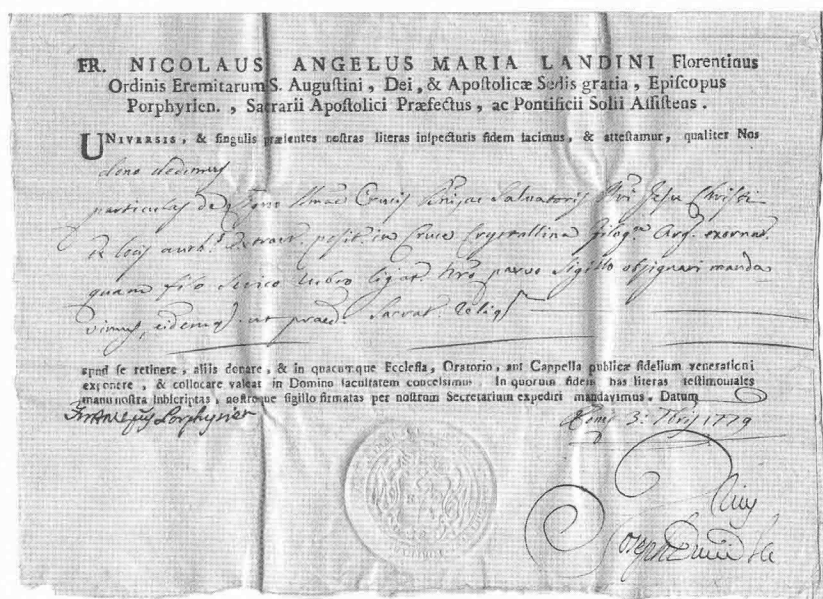 FR. NICOLAUS ANGELUS MARIA LANDINI Florentinus
Ordinis Eremitarum S. Augustini, Dei, & Apoſtolicæ Sedis gratia, Epiſcopus
Porphyrien., Sacrarii Apoſtolici Præfectus, ac Pontificii Solii Aſſiſtens.
UNIVERSIS, & ſingulis præſentes noſtras literas inſpecturis fidem facimus, & atteſtamur, qualiter Nos
dono dedimus
particulas de Ligno Smae Crucis Salvatoris Nri Jesu Christi
ex locis auth.s extract. posit. in Cruce Crystallina filogr. Arg. exornat.
quam filo serico rubro ligat. nro parvo sigillo obsignari manda
vimus, eidemq. ut praed. Sacras Reliq
apud ſe retinere, aliis donare, & in quacumque Eccleſia, Oratorio, aut Cappella publicæ fidelium venerationi
exponere, & collocare valeat in Domino facultatem conceſſimus. In quorum fidem has literas teſtimoniales
manu noſtra ſubſcriptas, noſtroque ſigillo firmatas per noſtrum Secretarium expediri mandavimus. Datum
Porphyrien
3 1779
Joseph